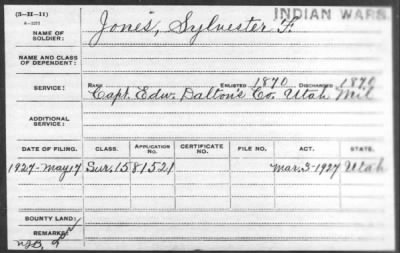 (3-H-11)
INDIAN WARS.
NAME OF SOLDIER: Jones, Sylvester F.
NAME AND CLASS OF DEPENDENT:
RANK ENLISTED 1870 DISCHARGED 1870
SERVICE: Capt. Edw. Dalton's Co. Utah Mil
ADDITIONAL SERVICE:
DATE OF FILING. CLASS. APPLICATION NO. CERTIFICATE NO. FILE NO. ACT. STATE.
1927-May 17 Sur. 1581521 Mar. 3-1927 Utah
BOUNTY LAND:
REMARKS: